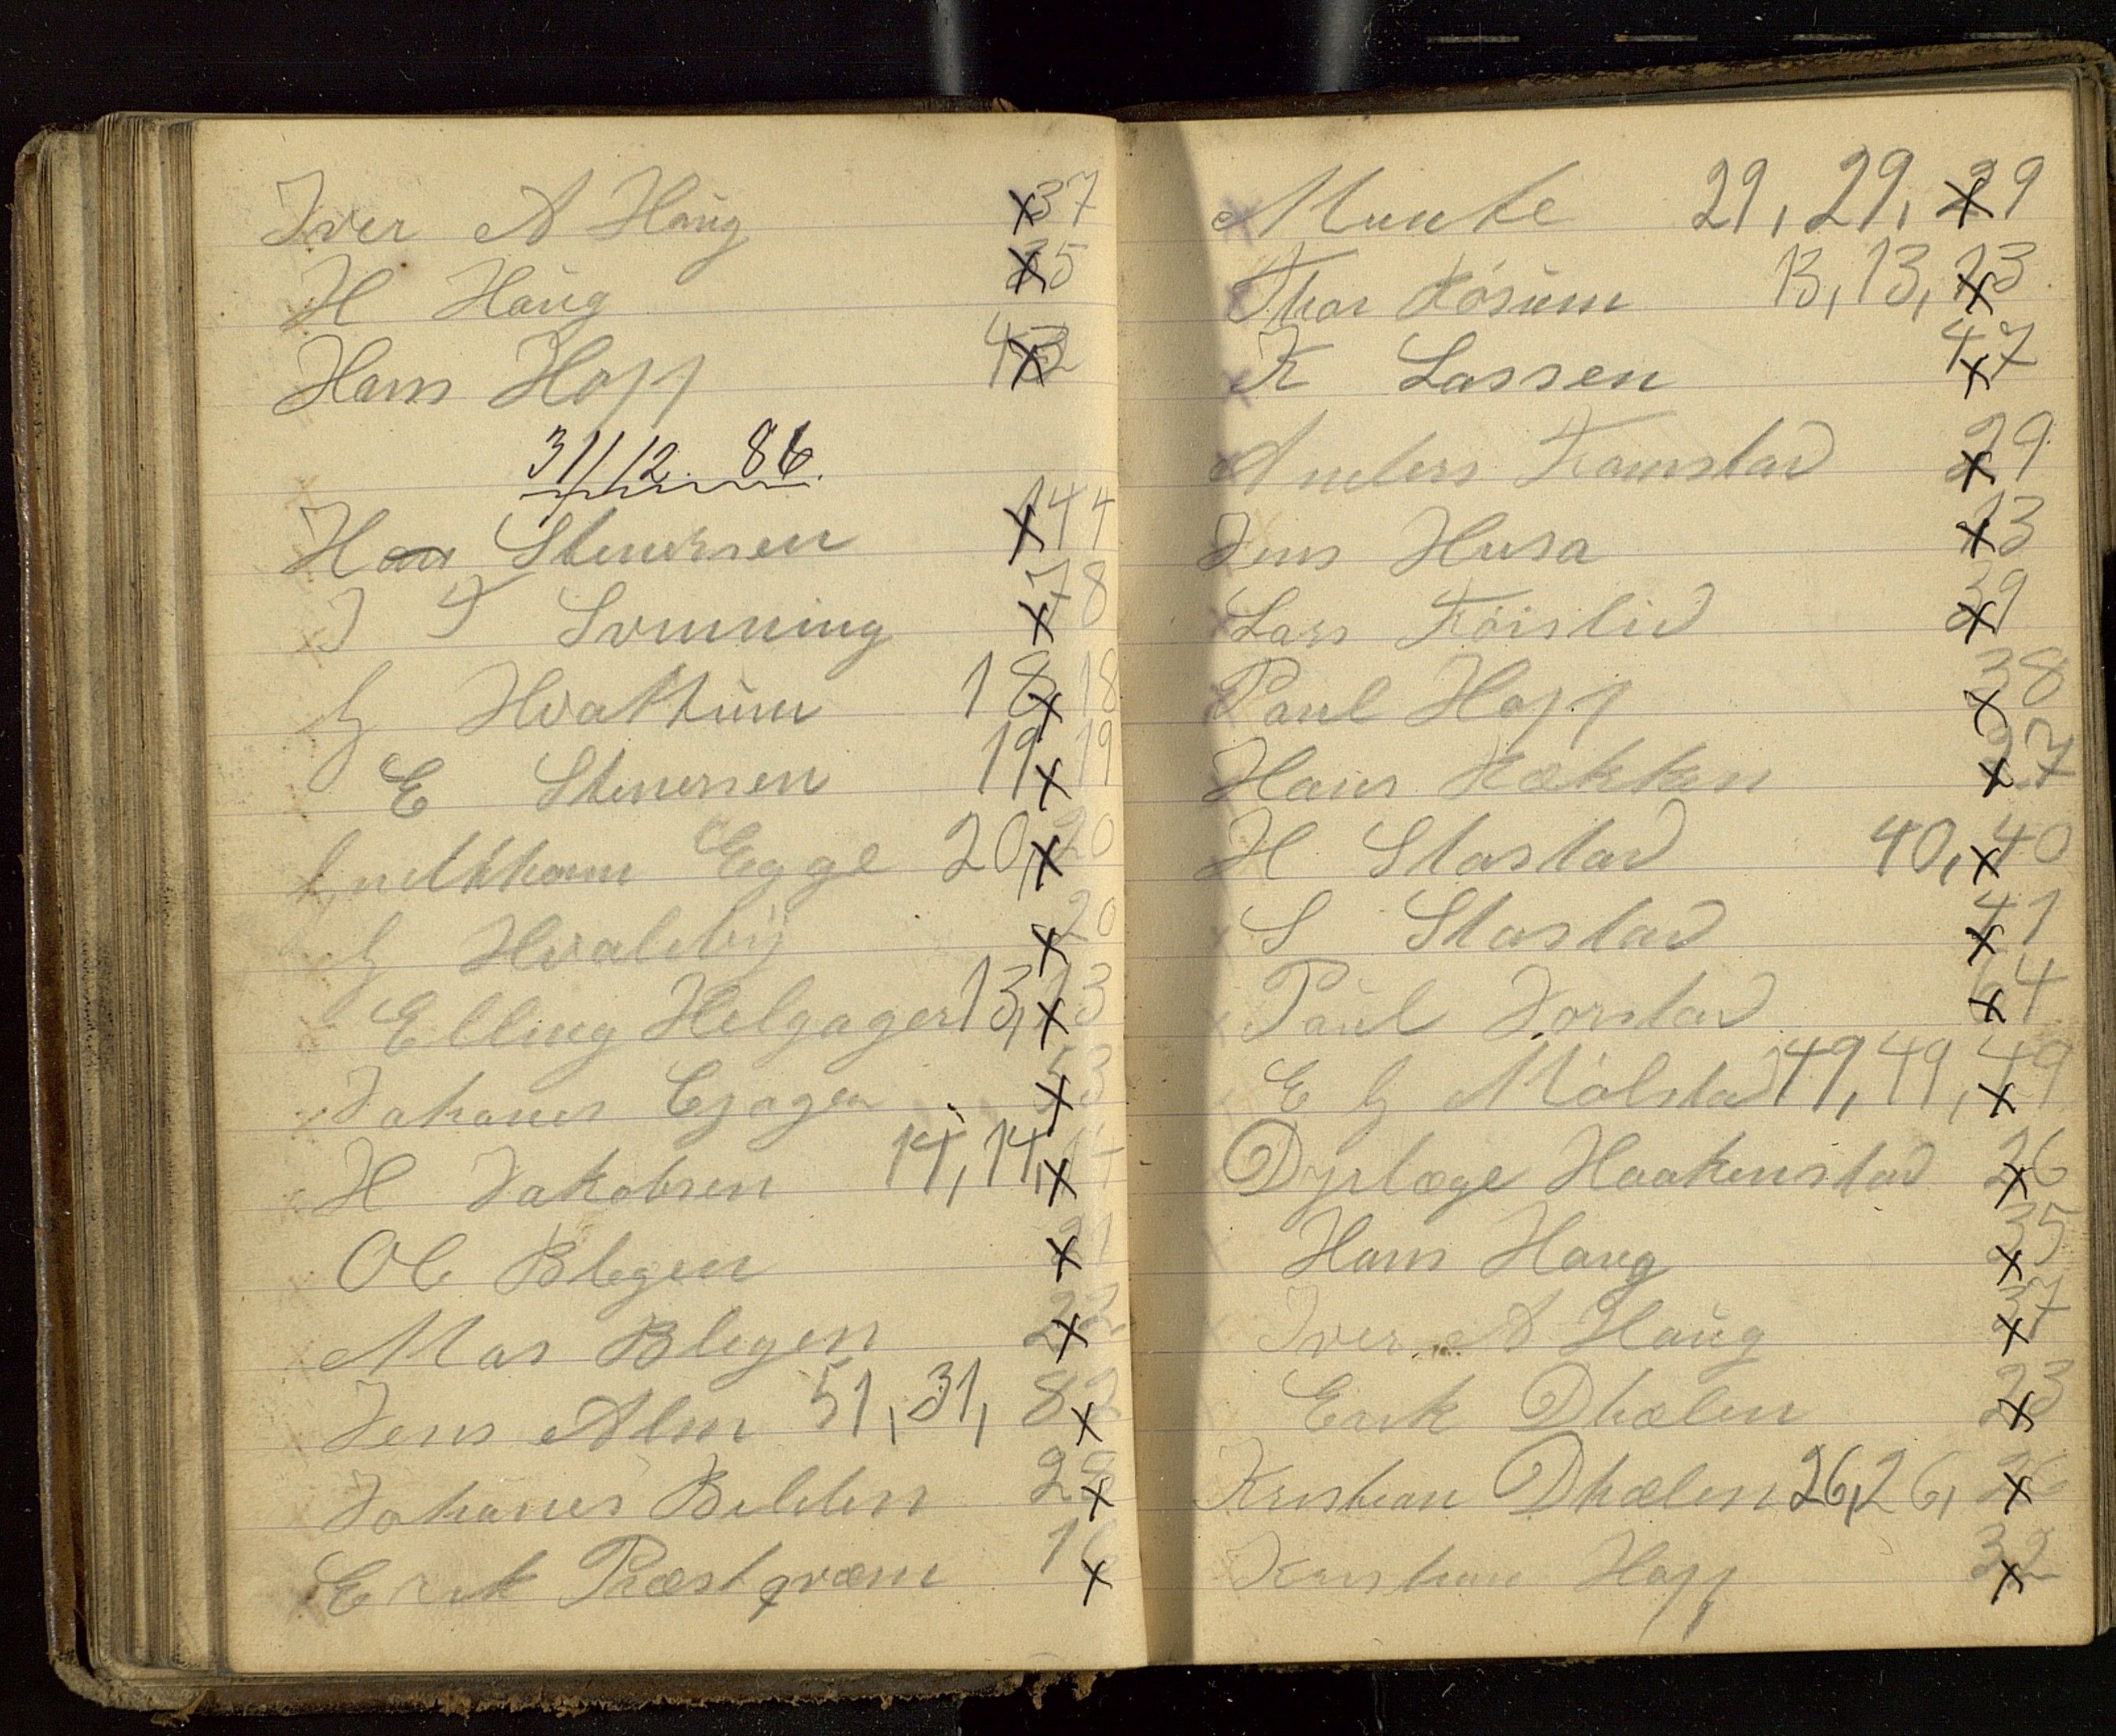 Iver A Haug x37
H Haug x35
Hans Hopp 4x2
31/12 86.
H Stenersen x144
J T Svenning x78
G Hvattum 18 x 18
E Stenersen 19 x 19
Gudthorm Egge 20, x 20
G Hvaleby x 20
Elling Helgager 13, x 13
Johanes x 53
H Jakobsen 14, 14, x 14
Ole Blegen x 21
Mas Blegen 22 x
Jens Alm 51, 31, 82 x
Johanes Belden 28 x
Erik Præstqværn 16 x
Munte 29, 29, x 29
Thor Røsum 13, 13, x 13
K Lassen 47 x
Anders Ramstad x 29
Jens Husa x 13
Lars Røislid x 39
Paul Hopp x 38
Hans Bækken x 27
H Stastad 40, x 40
S Stastad x 41
Paul Jorstad x 64
E G Mølstad 49, 49, x 49
Dyrlæge Haakenstad x 26
Hans Haug x 35
Iver A Haug x 37
Erik Dhælen x 23
Kristian Dhælen 26, 26, x 26
Kristian Hopp x 32